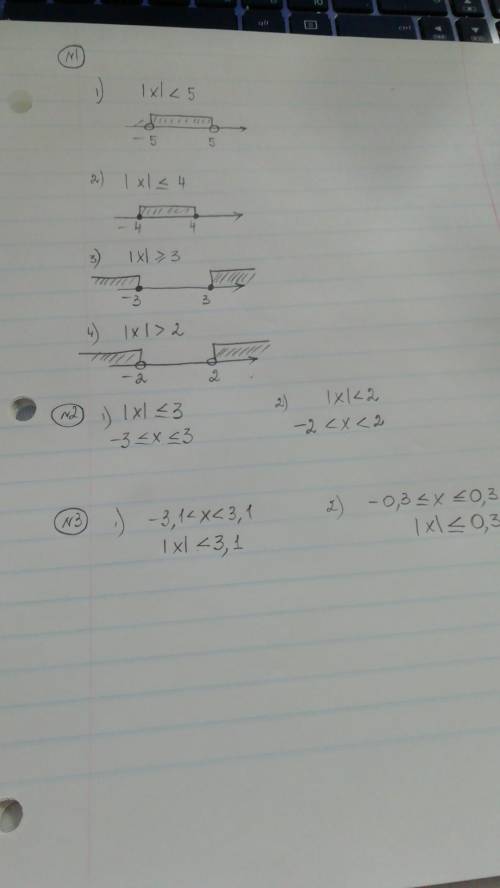 №1
1) |x| < 5
-5 5
2) |x| ≤ 4
-4 4
3) |x| ⩾ 3
-3 3
4) |x| > 2
-2 2
№2 1) |x| ≤ 3 2) |x| < 2
-3 ≤ x ≤ 3 -2 < x < 2
№3 1) -3,1 < x < 3,1 2) -0,3 ≤ x ≤ 0,3
|x| < 3,1 |x| ≤ 0,3